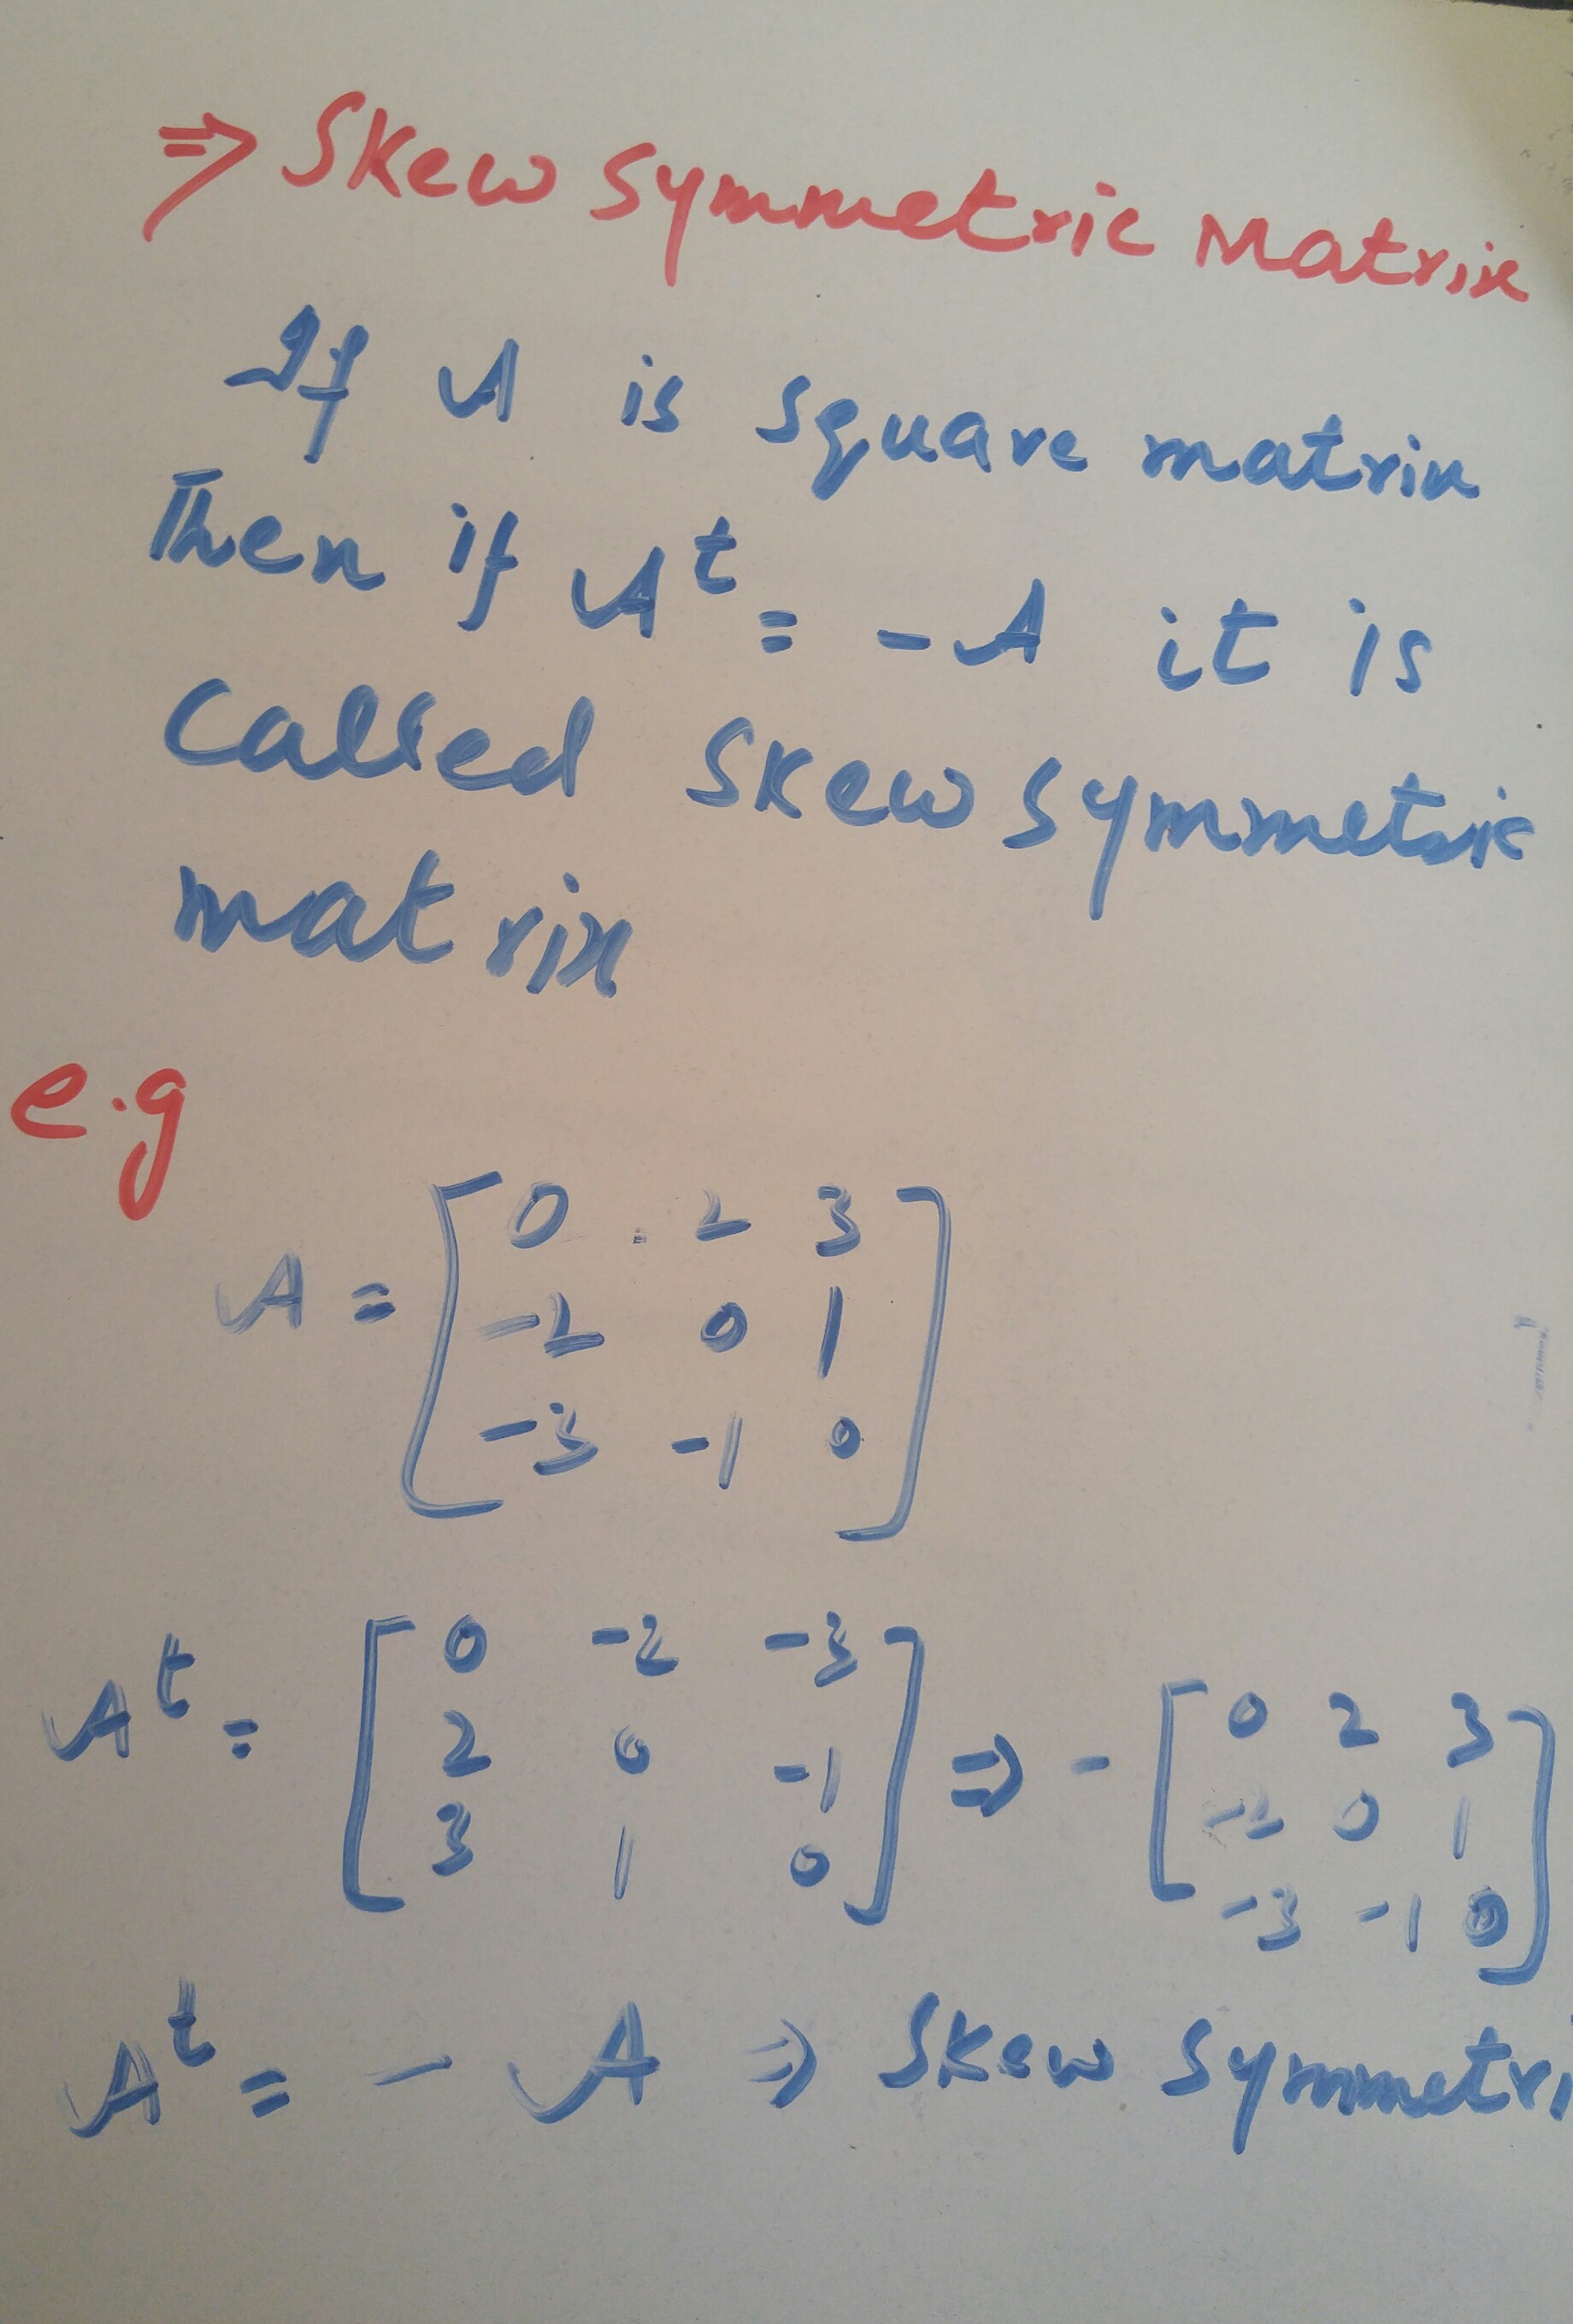 ⇒ Skew Symmetric Matrix
If A is square matrix
Then if Aᵗ = -A it is
called skew symmetric
matrix
e.g
A = [ 0 2 3
-2 0 1
-3 -1 0 ]
Aᵗ = [ 0 -2 -3
2 0 -1
3 1 0 ] ⇒ - [ 0 2 3
-2 0 1
-3 -1 0 ]
Aᵗ = - A ⇒ Skew Symmetri